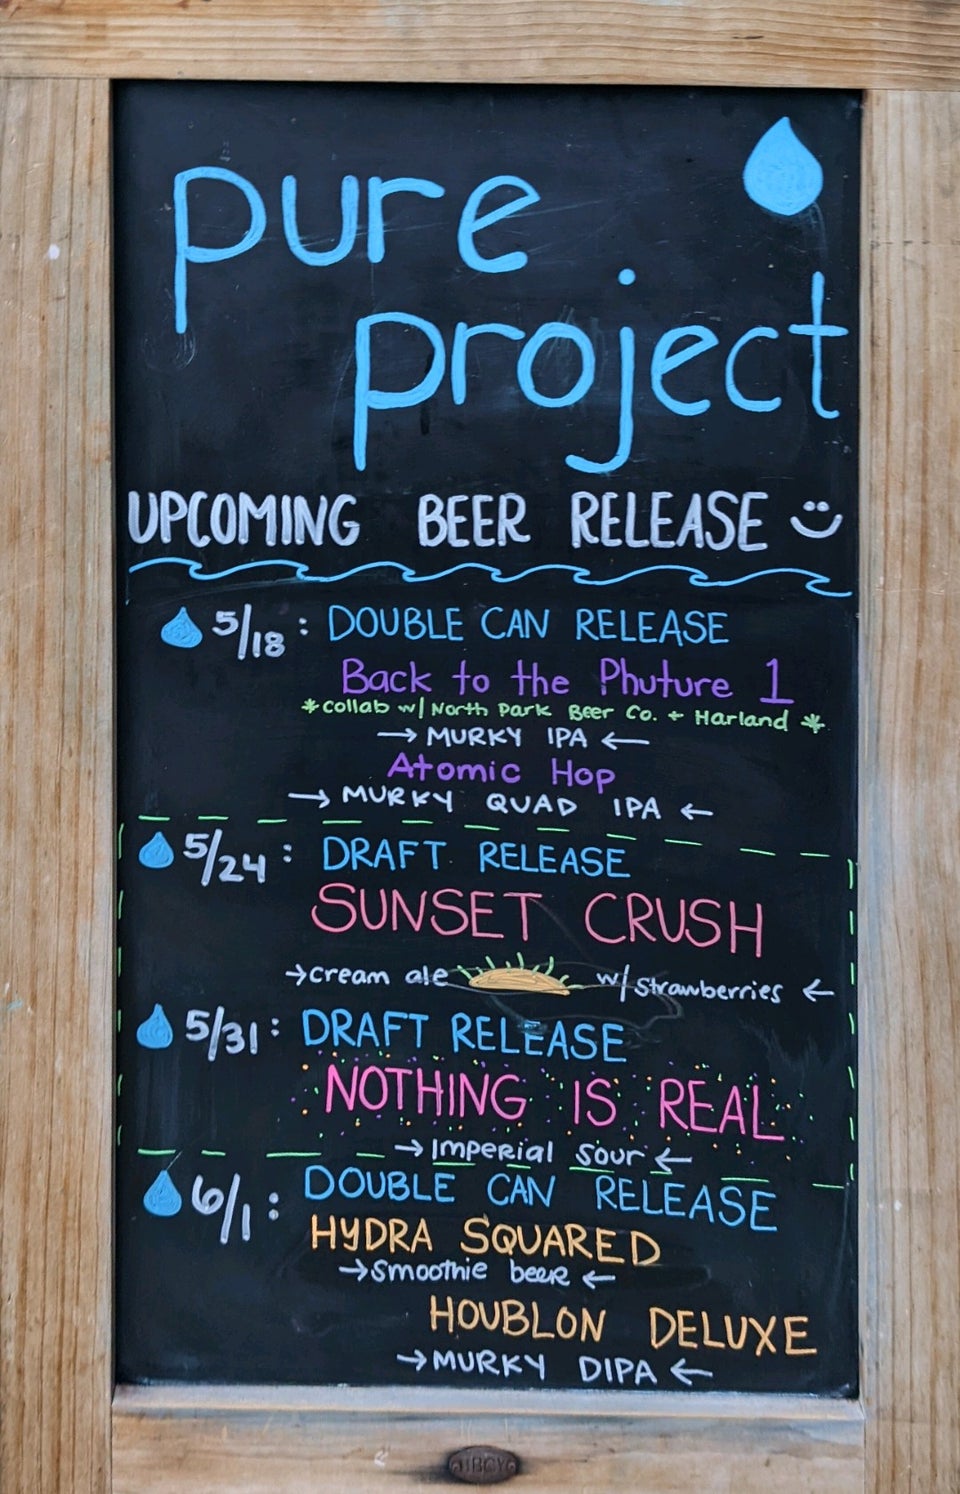 pure
project
UPCOMING BEER RELEASE
5/18: DOUBLE CAN RELEASE
Back to the Phuture 1
*collab w/ North Park Beer Co. + Harland *
→ MURKY IPA ←
Atomic Hop
→ MURKY QUAD IPA ←
5/24: DRAFT RELEASE
SUNSET CRUSH
→cream ale w/ strawberries ←
5/31: DRAFT RELEASE
NOTHING IS REAL
→Imperial sour ←
6/1: DOUBLE CAN RELEASE
HYDRA SQUARED
→smoothie beer ←
HOUBLON DELUXE
→MURKY DIPA ←